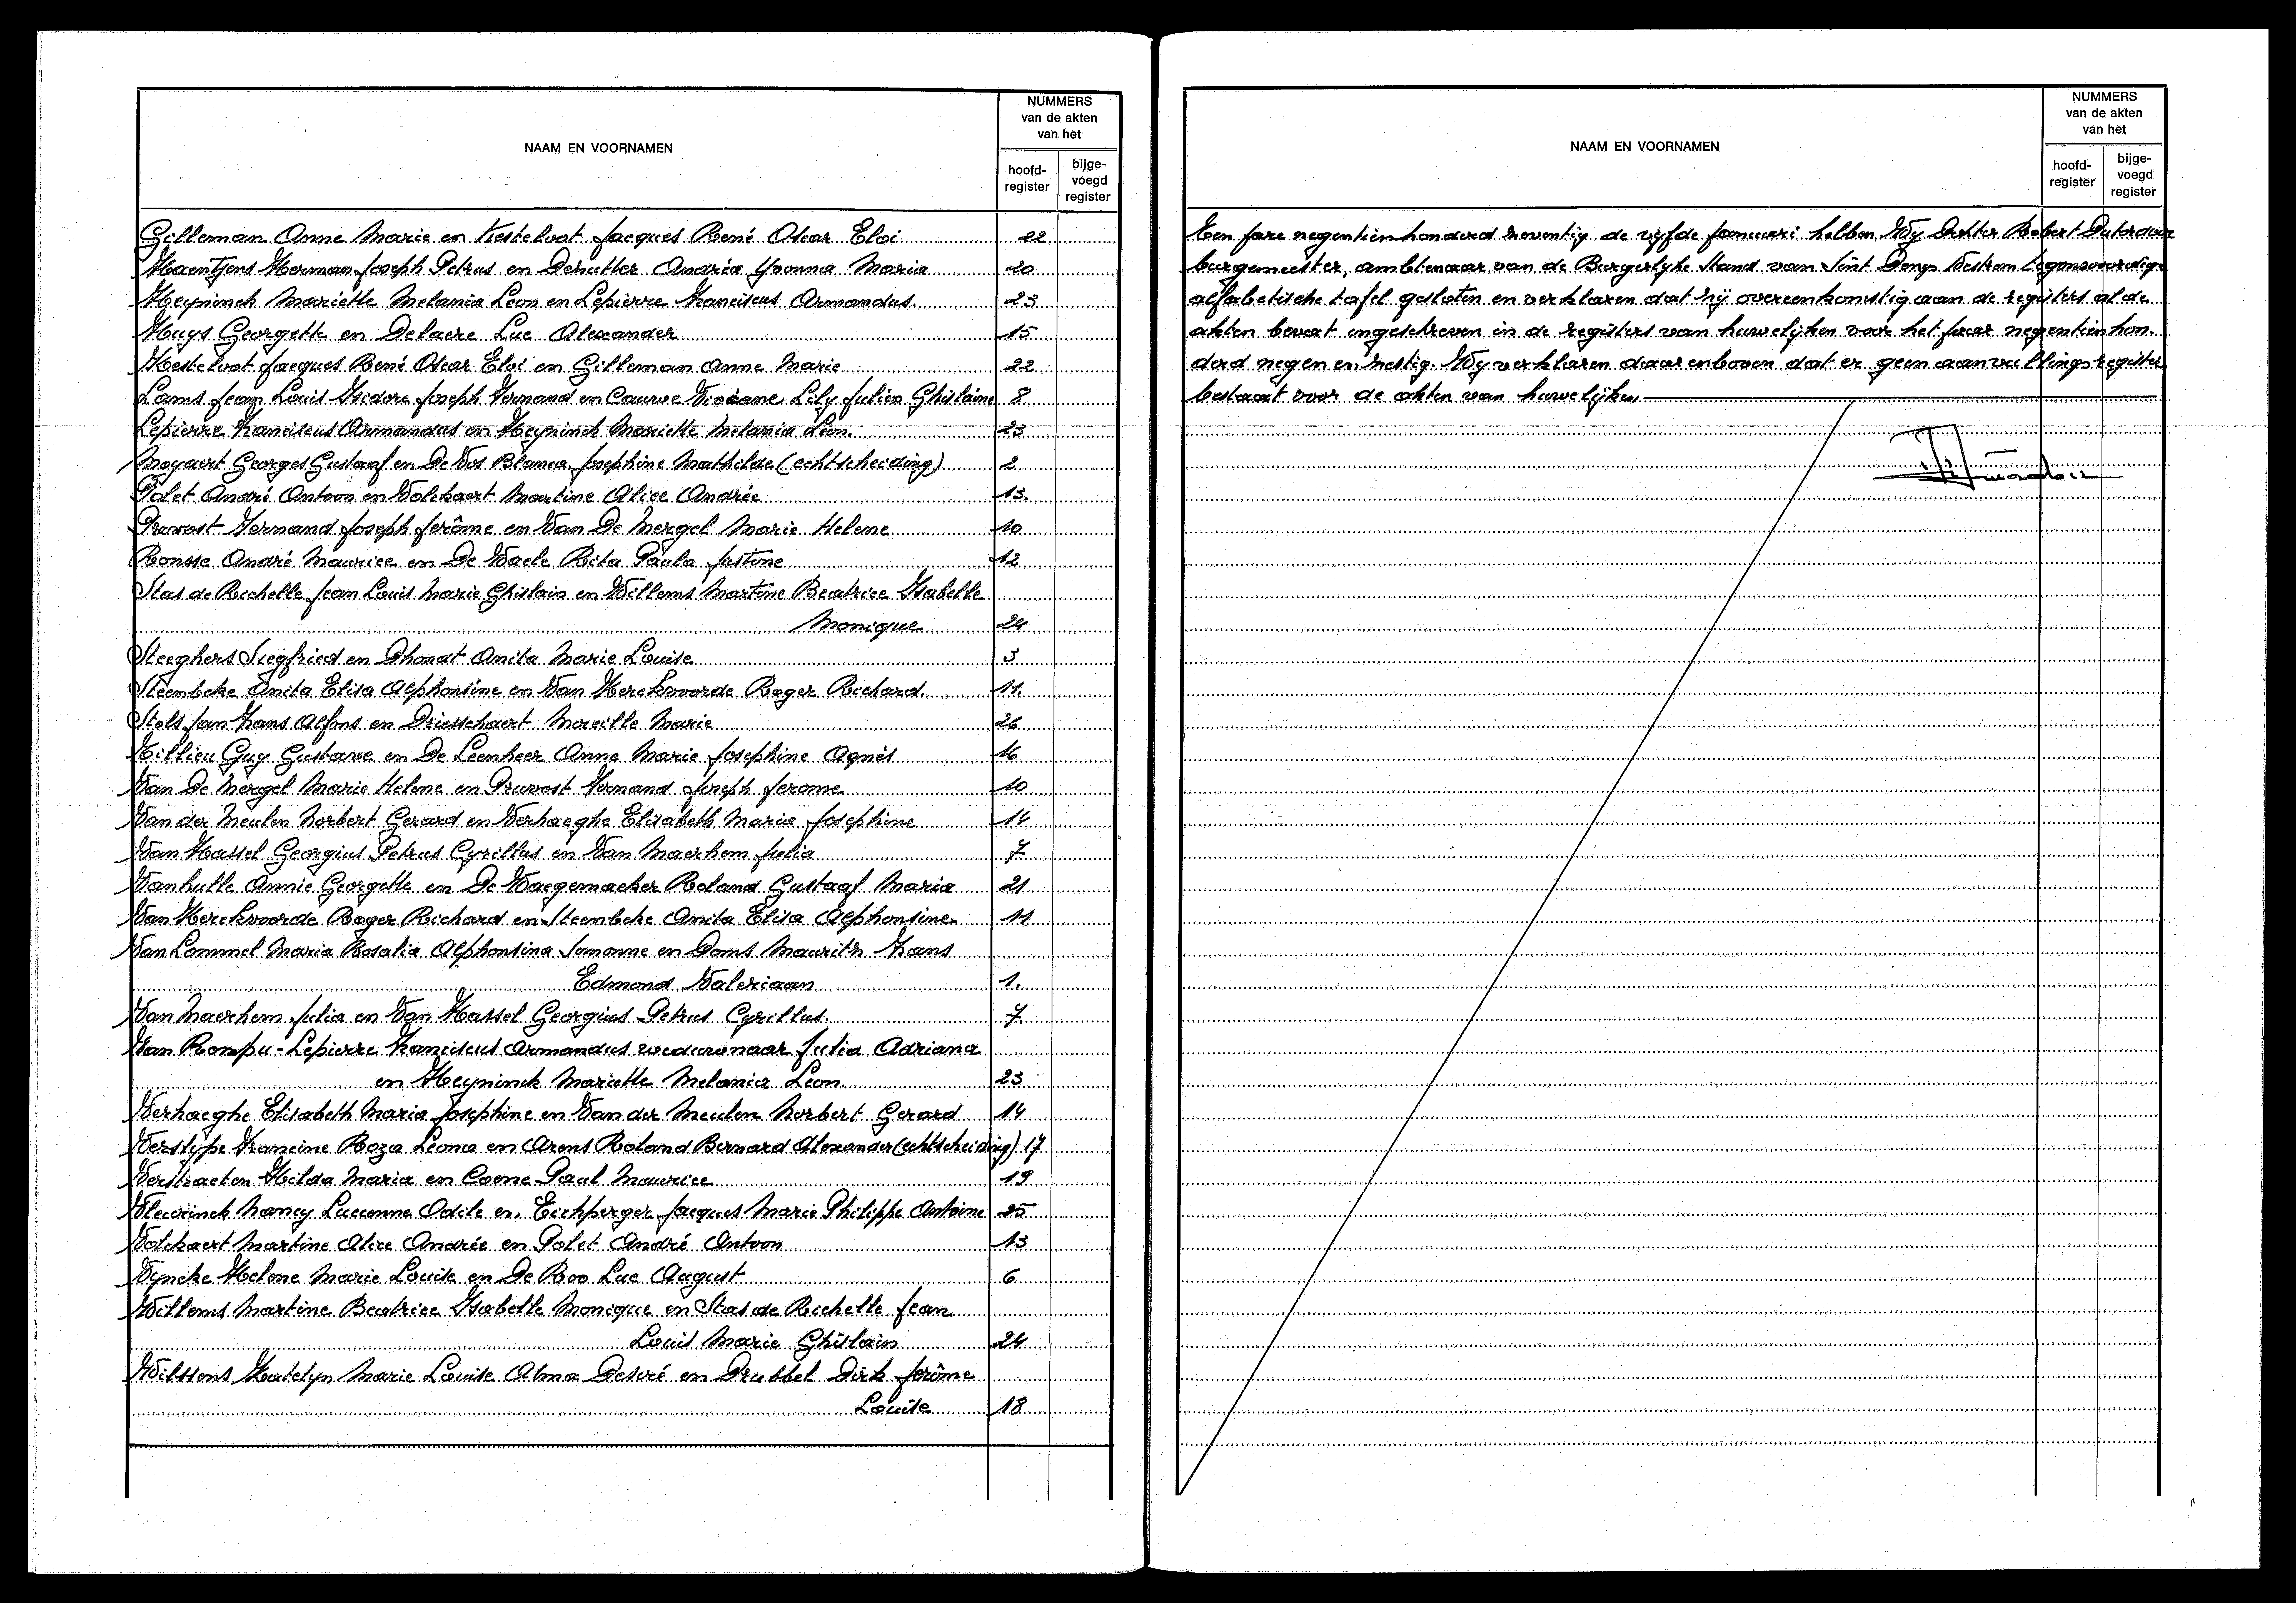 NAAM EN VOORNAMEN
NUMMERS
van de akten
van het
hoofd-
register
bijge-
voegd
register
Gilleman Anne Marie en Kesteloot Jacques René Oscar Eloi 22
Haentjens Herman Joseph Petrus en Derutter Andréa Yvonna Maria 20
Heyninck Mariette Melania Leon en Lepierre Franciscus Armandus. 23
Huys Georgette en Delaere Luc Alexander 15
Kesteloot Jacques René Oscar Eloi en Gilleman Anne Marie 22
Lams Jean Louis Isidore Joseph Fernand en Cauwe Viviane Lily Julia Ghislaine 8
Lepierre Franciscus Armandus en Heyninck Mariette Melania Leon. 23
Moyaert Georges Gustaaf en De Vos Blanca Josephine Mathilde (echtscheiding) 2
Polet André Antoon en Volckaert Martine Alice Andrée 13.
Pruvost Fernand Joseph Jerôme en Van De Mergel Marie Helene 10
Ronsse André Maurice en De Waele Rita Paula Justine 12
Stas de Richelle Jean Louis Marie Ghislain en Willems Martine Beatrice Isabelle
Monique 24
Steeghers Siegfried en Dhonat Anita Marie Louise 3
Steenbeke Anita Elisa Alphonsine en Van Herckvoorde Roger Richard. 11.
Stols Jan Frans Alfons en Driesschaert Mireille Marie 26
Tillieu Guy Gustave en De Leenheer Anne Marie Josephine Agnès 16
Van De Mergel Marie Helene en Pruvost Fernand Joseph Jerome 10
Van der Meulen Norbert Gerard en Verhaeghe Elisabeth Maria Josephine 14
Van Hassel Georgius Petrus Cyrillus en Van Maerhem Julia 7
Vanhulle Annie Georgette en De Waegemaeker Roland Gustaaf Maria 21
Van Herckvoorde Roger Richard en Steenbeke Anita Elisa Alphonsine 11
Van Lommel Maria Rosalia Alphonsina Simonne en Doms Maurits Frans
Edmond Valeriaan 1.
Van Maerhem Julia en Van Hassel Georgius Petrus Cyrillus. 7.
Van Rompu-Lepierre Franciscus Armandus weduwnaar Julia Adriana
en Heyninck Mariette Melania Leon. 23
Verhaeghe Elisabeth Maria Josephine en Van der Meulen Norbert Gerard 14
Verslype Francine Roza Leona en Arens Roland Bernard Alexander (echtscheiding) 17
Verstraeten Hilda Maria en Coene Paul Maurice 19
Vlerinck Nancy Lucienne Odile en. Eichperger Jacques Marie Philippe Antoine 25
Volckaert Martine Alice Andrée en Polet André Antoon 13
Vyncke Helene Marie Louise en De Roo Luc August 6
Willems Martine Beatrice Isabelle Monique en Stas de Richelle Jean
Louis Marie Ghislain 24
Wilssens Katelyn Marie Louise Alma Desiré en Drubbel Dirk Jerôme
Louise 18
NAAM EN VOORNAMEN
NUMMERS
van de akten
van het
hoofd-
register
bijge-
voegd
register
Een jare negentienhonderd zeventig de vyfde januari hebben Wy Dokter Robert Dutordoir
burgemeester, ambtenaar van de Burgerlyke Stand van Sint Denys Westrem tegenwoordige
alfabetische tafel gesloten en verklaren dat zij overeenkomstig aan de registers al de
akten bevat ingeschreven in de registers van huwelijken voor het jaar negentienhon-
derd negen en zestig. Wy verklaren daarenboven dat er geen aanvullingsregister
bestaat voor de akten van huwelijken